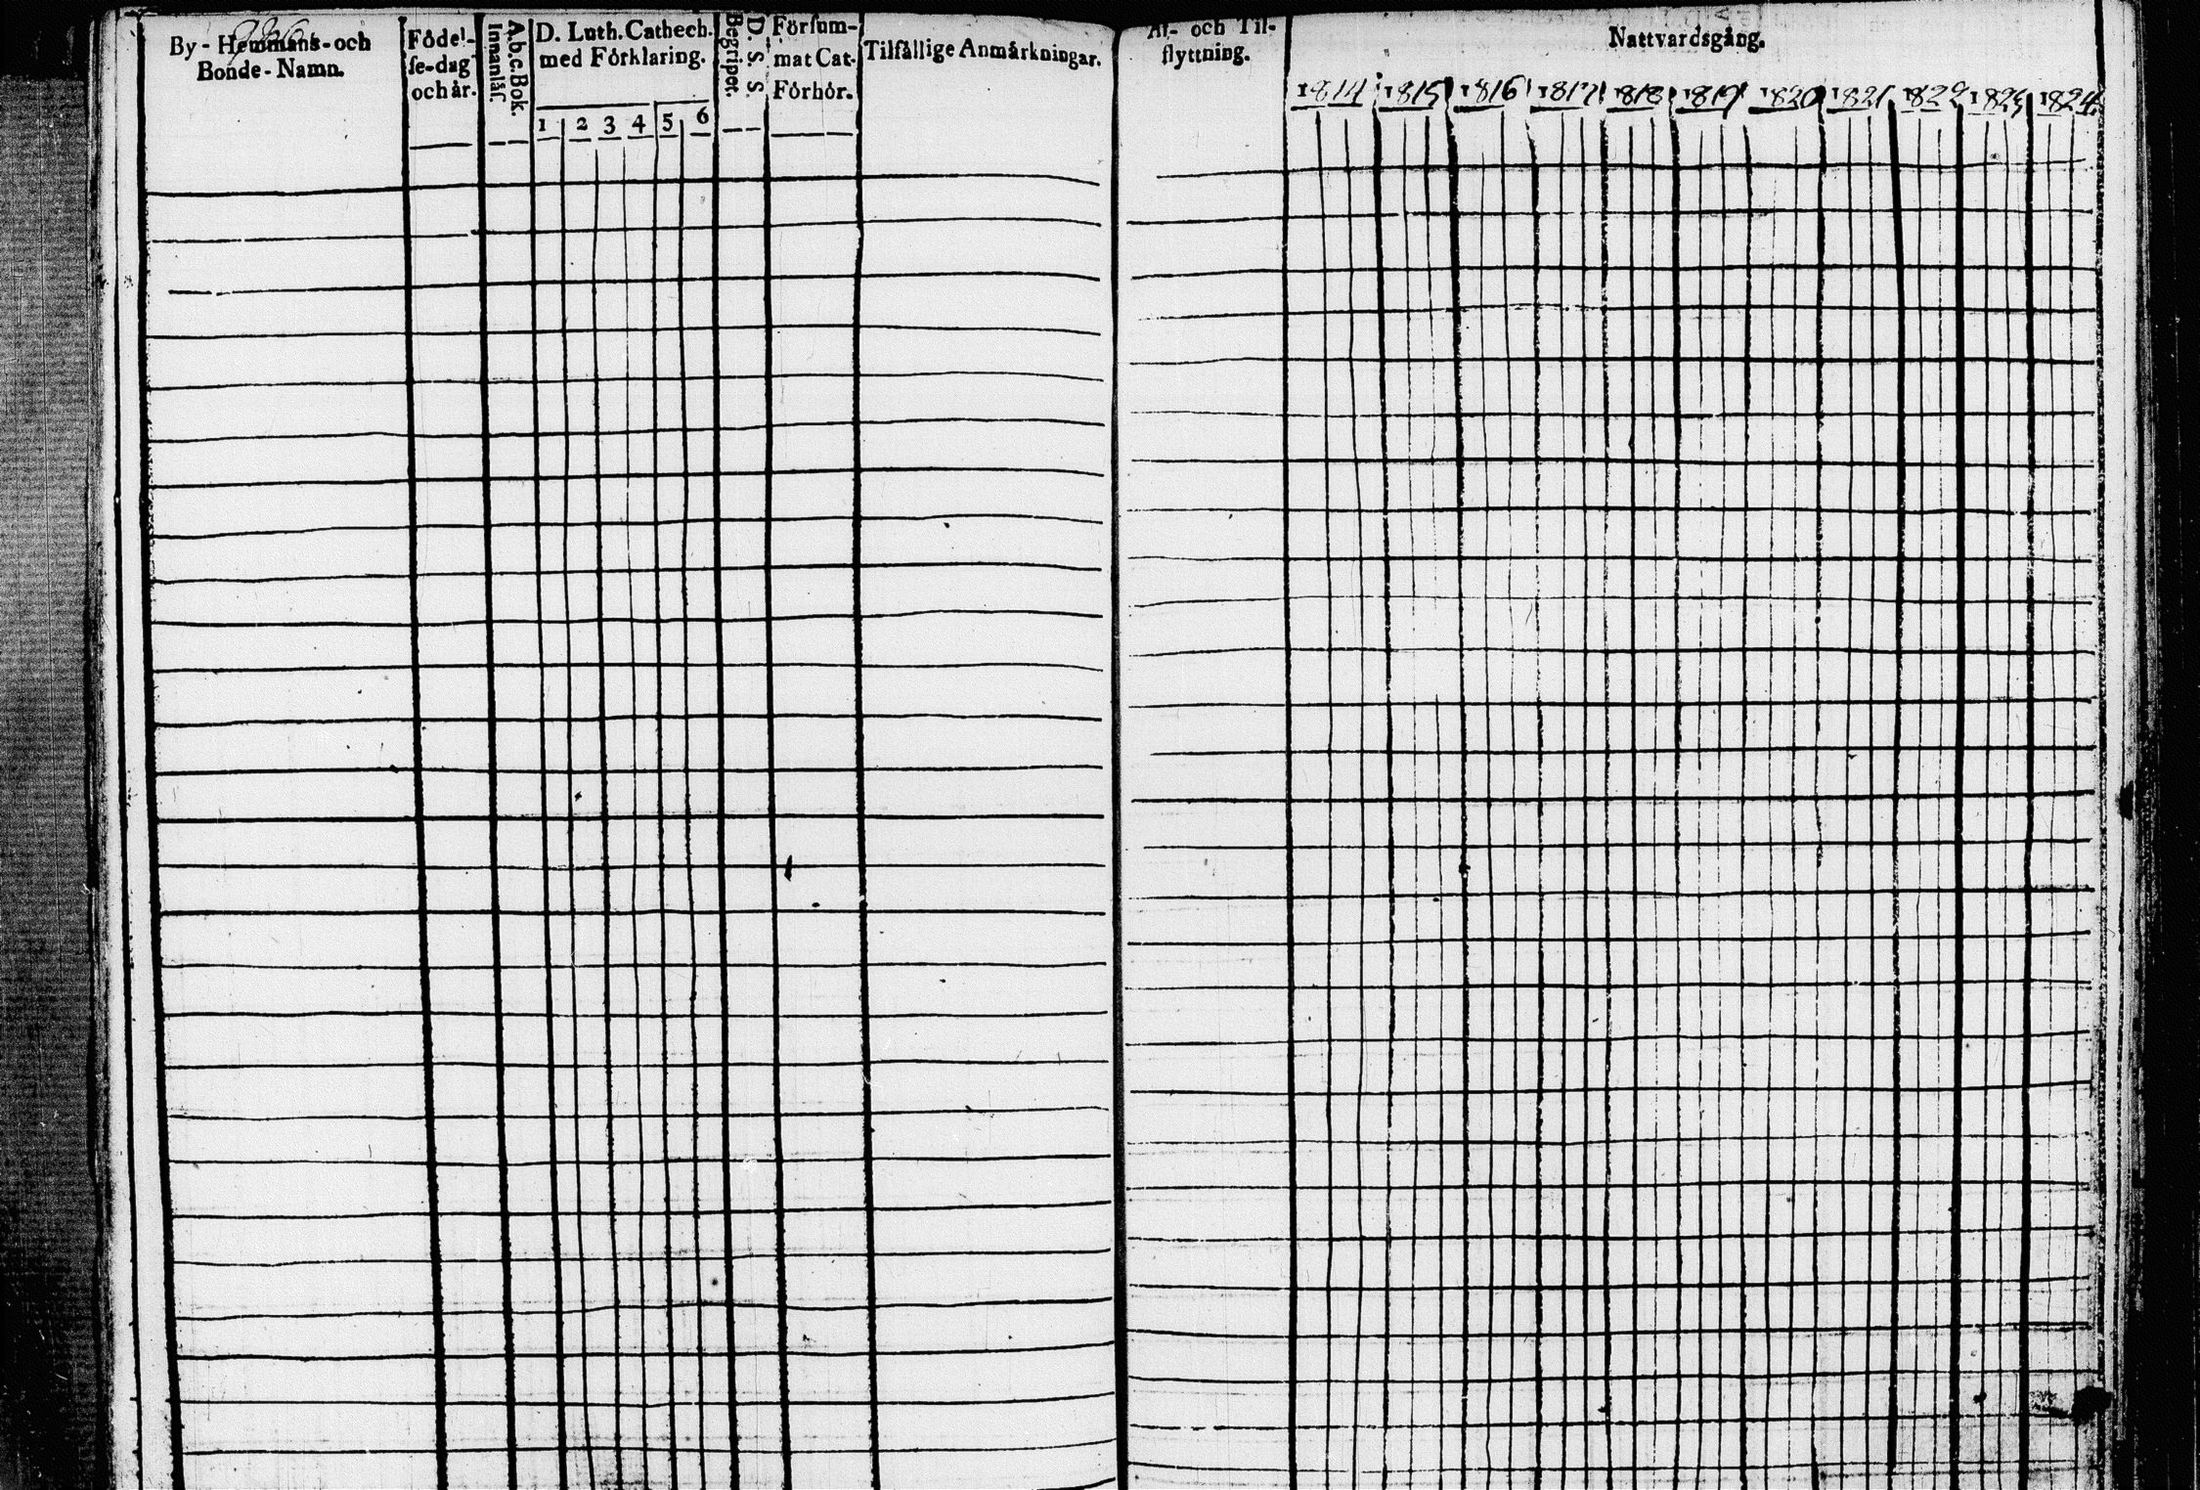 By-Hemmans-och
Bonde-Namn.
Födel-
ſe-dag
och år.
A.b.c. Bok.
Innanläſ.
D. Luth. Cathech.
med Förklaring.
1 2 3 4 5 6
D. S. S.
Begriper.
Förſum-
mat Cat.
Förhör.
Tilfällige Anmärkningar.
Af- och Til-
flyttning.
Nattvardsgång.
1814 1815 1816 1817 1818 1819 1820 1821 1822 1823 1824